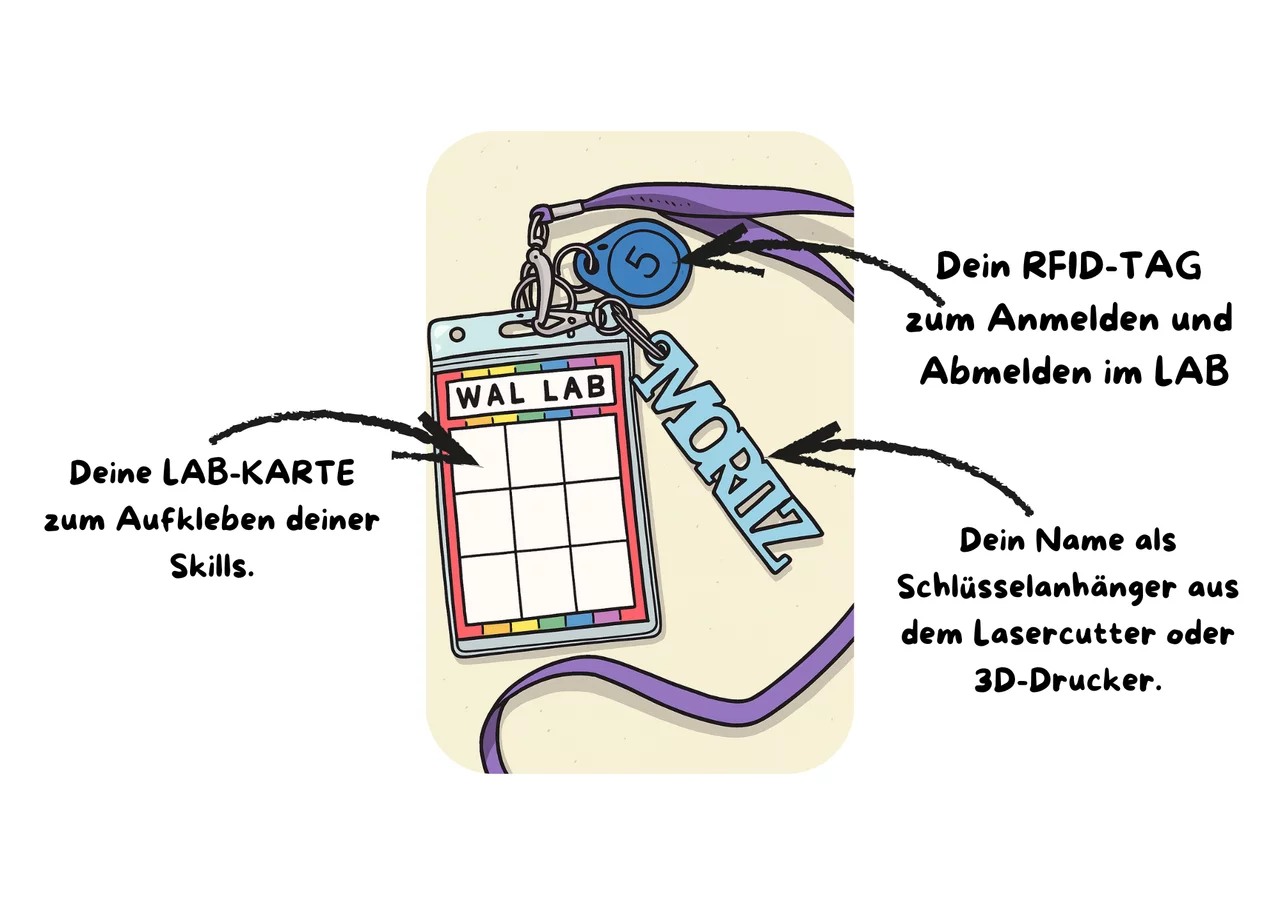 Dein RFID-TAG
zum Anmelden und
Abmelden im LAB
5
WAL LAB
MORITZ
Deine LAB-KARTE
zum Aufkleben deiner
Skills.
Dein Name als
Schlüsselanhänger aus
dem Lasercutter oder
3D-Drucker.